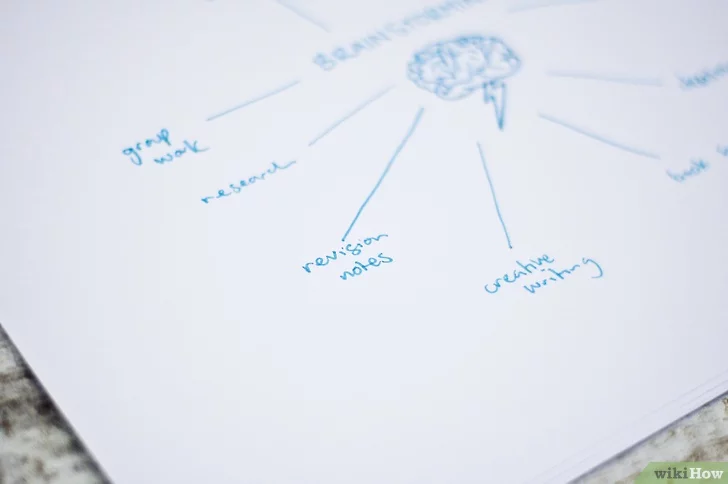 BRAINSTORMIN
group
work
research
revision
notes
creative
writing
book
wikiHow